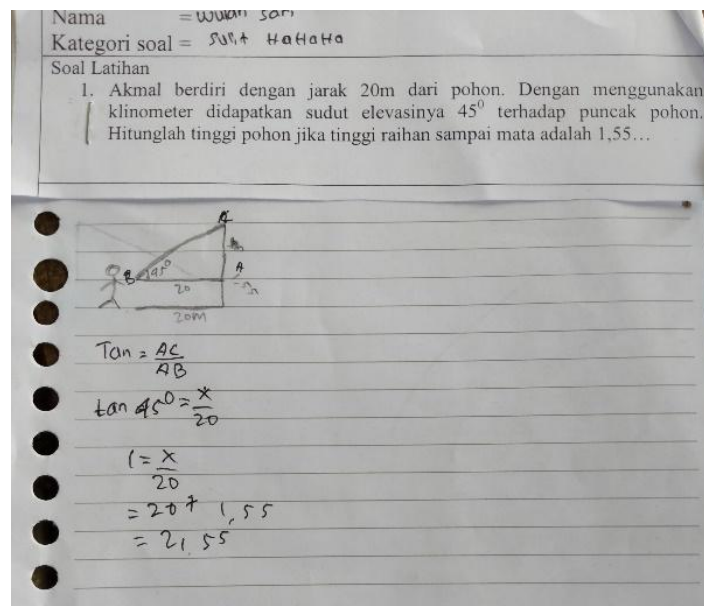 Nama = wulan sari
Kategori soal = Sulit HaHaHa
Soal Latihan
1. Akmal berdiri dengan jarak 20m dari pohon. Dengan menggunakan
klinometer didapatkan sudut elevasinya 45⁰ terhadap puncak pohon.
Hitunglah tinggi pohon jika tinggi raihan sampai mata adalah 1,55...
C
B 45⁰ A
20
20m
Tan = AC/AB
tan 45⁰ = x/20
1 = x/20
= 20 + 1,55
= 21,55